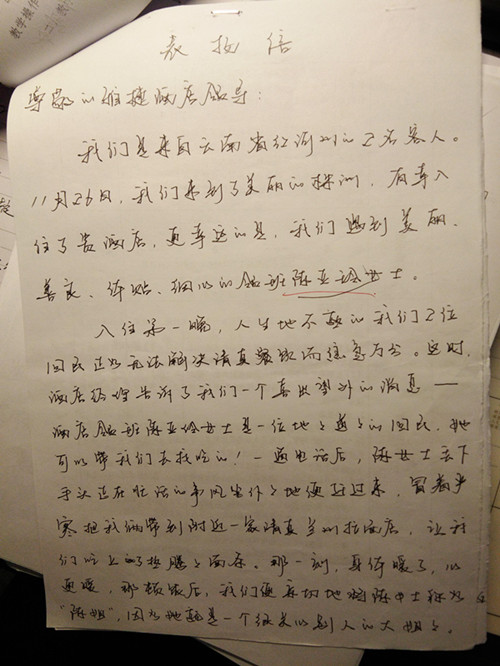 教学操作
表扬信
尊敬的雅捷酒店领导：
我们是来自云南省红河州的2名客人。
11月26日，我们来到了美丽的株洲，有幸入
住了贵酒店，更幸运的是，我们遇到美丽、
善良、体贴、细心的领班陈亚玲女士。
入住第一晚，人生地不熟的我们2位
回民正为无法解决清真餐饮而焦急万分。这时，
酒店经理告诉了我们一个喜出望外的消息——
酒店领班陈亚玲女士是一位地地道道的回民，她
可以带我们去找吃的！一通电话后，陈女士丢下
手头正在忙活的事风尘仆仆地便赶过来，冒着严
寒把我俩带到附近一家清真兰州拉面店，让我
们吃上了热腾腾的面条。那一刻，身体暖了，心
更暖，那顿饭后，我们便亲切地将陈女士称为
“陈姐”，因为她就是一个很关心别人的大姐姐。